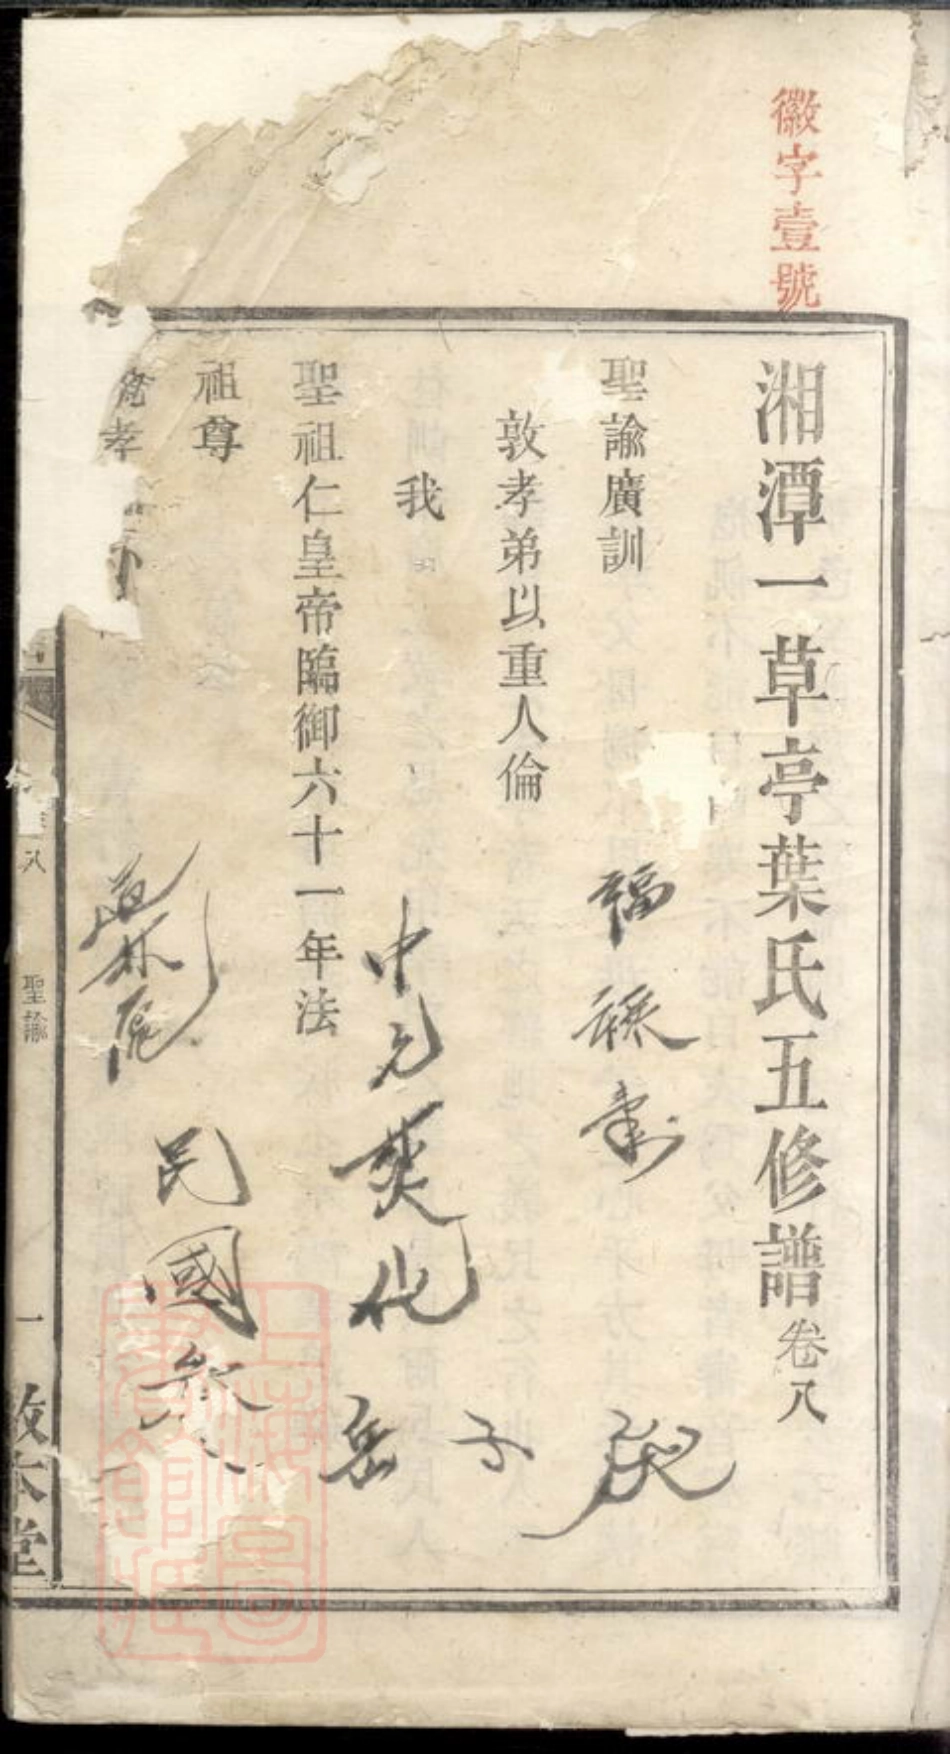 徽字壹號
湘潭一草亭葉氏五修譜卷八
聖諭廣訓
敦孝弟以重人倫
我
聖祖仁皇帝臨御六十一年法
祖尊
孝
八
聖諭
一
敦本堂
福祿壽
中元
化
民國
岳
子